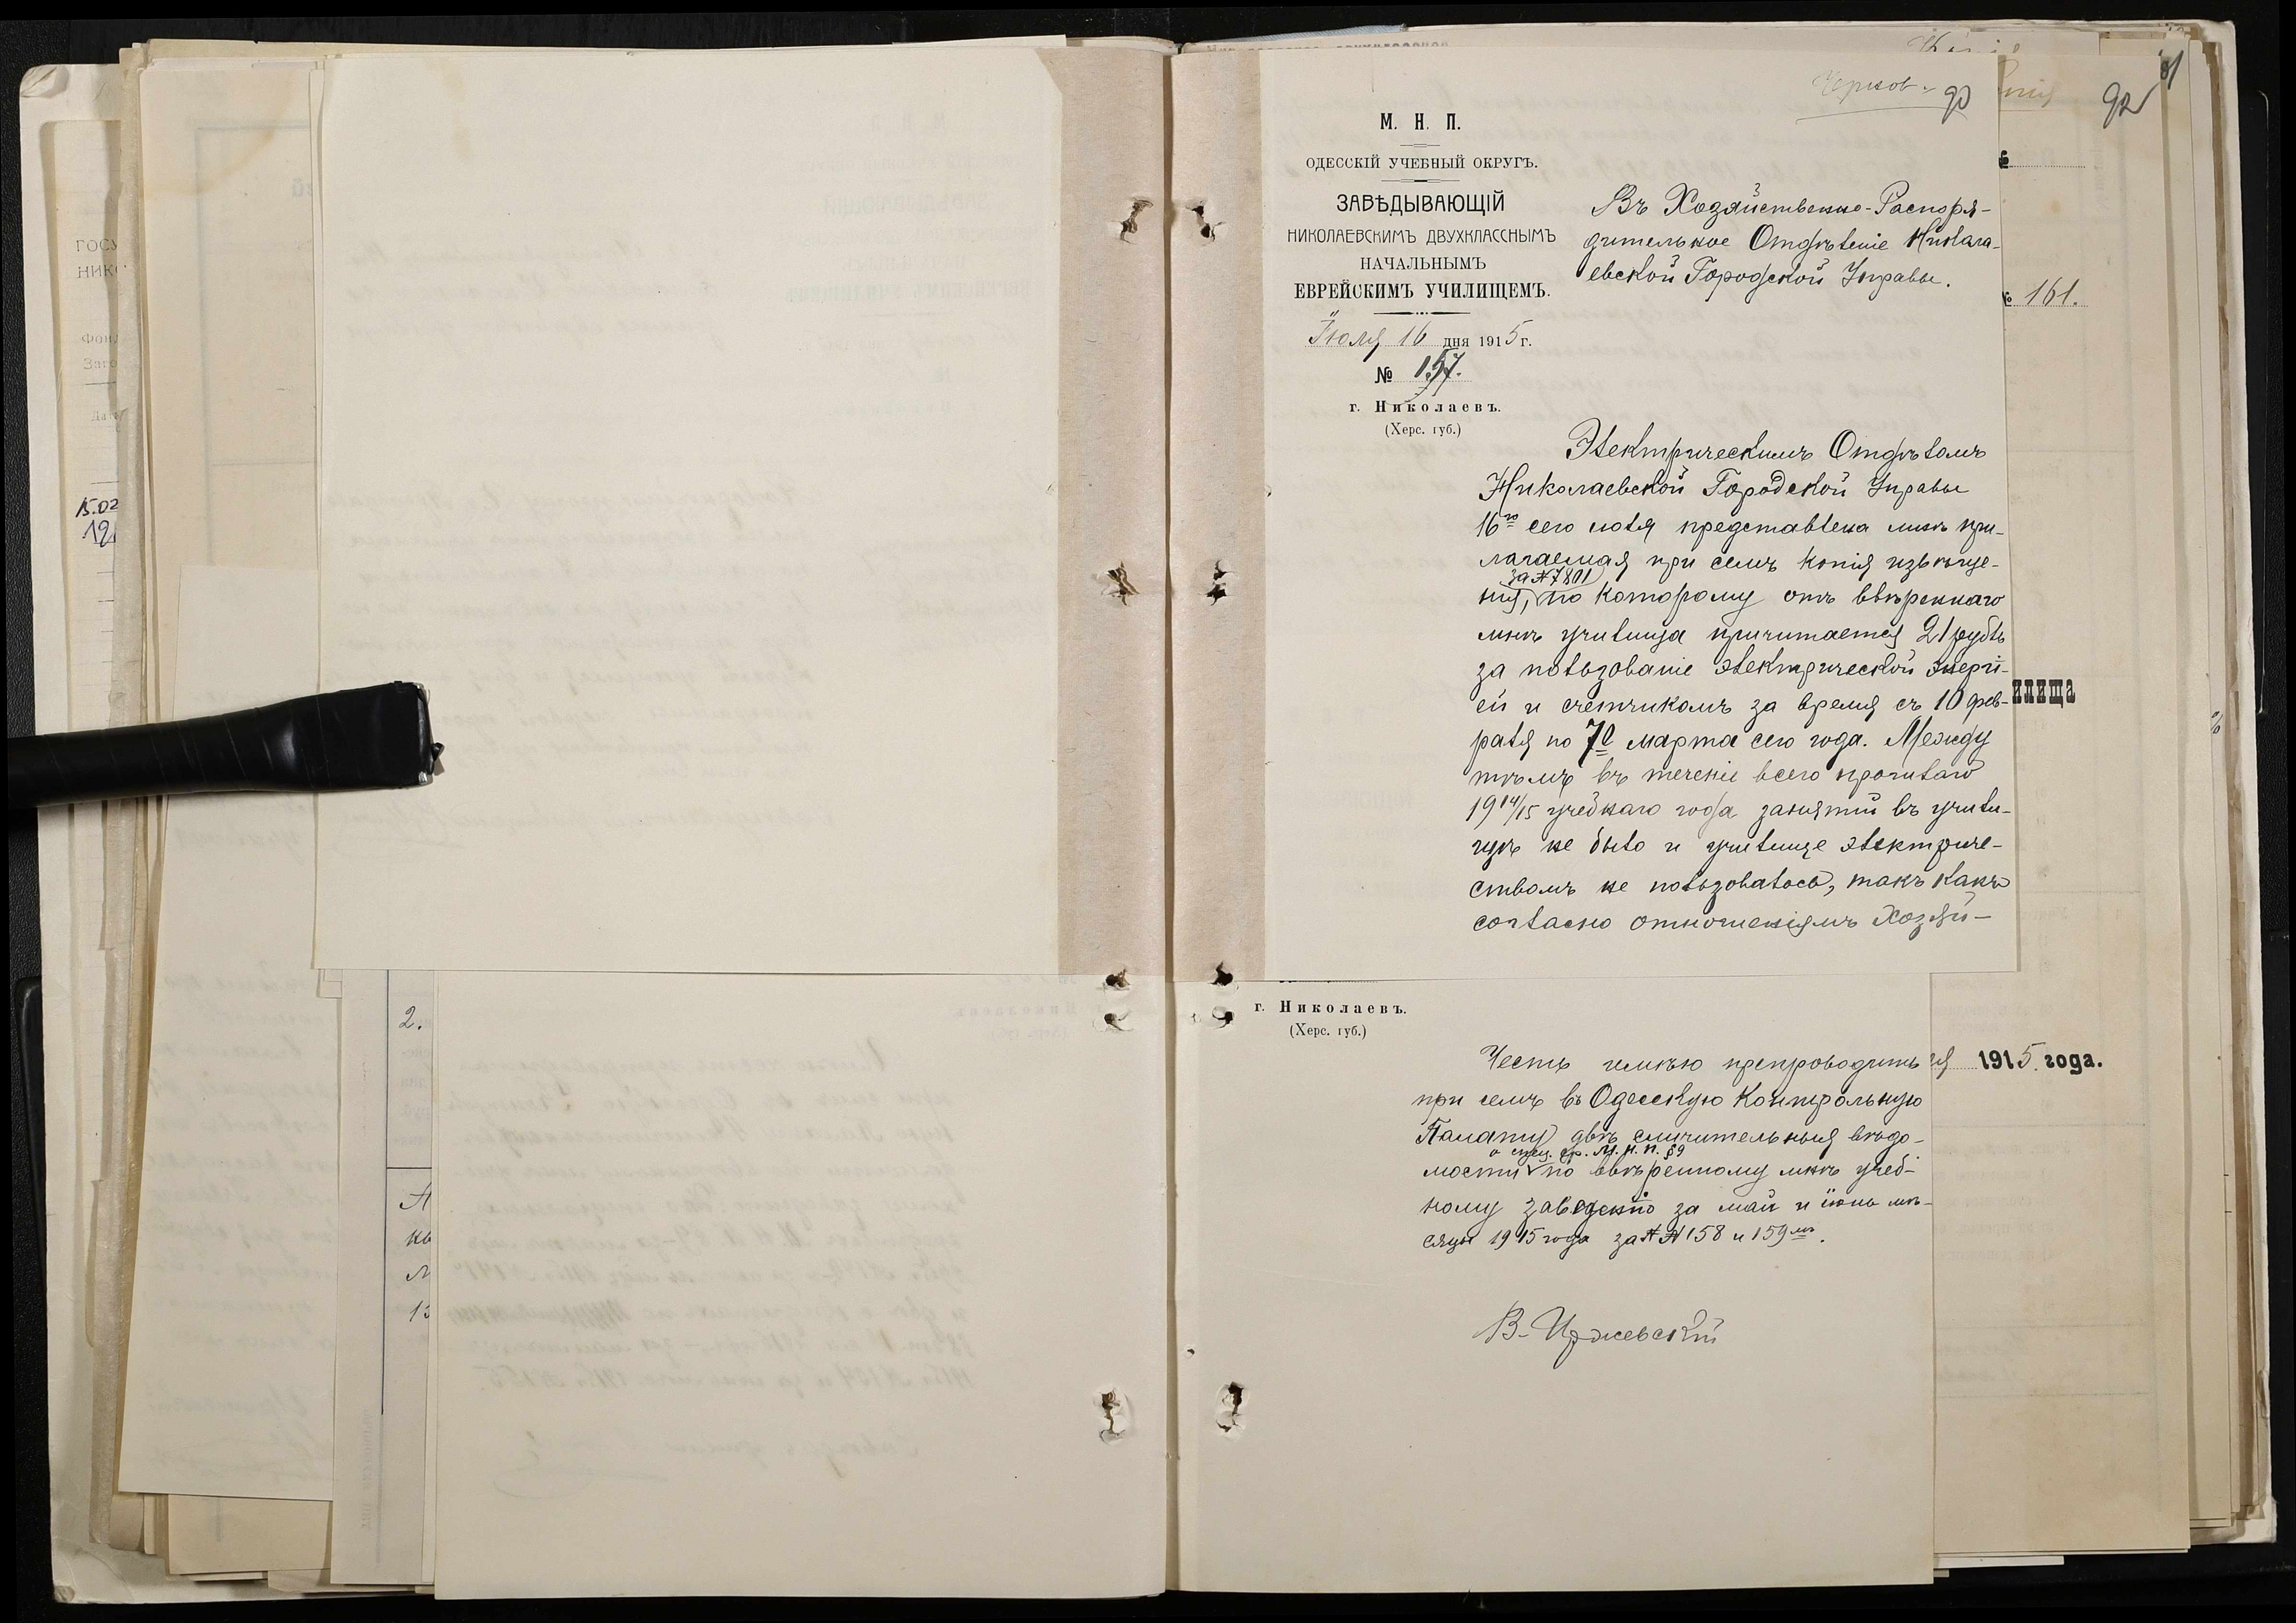 ГОСУ
НИК
Фонд
Заго
15.02
2.
А
кы
М
13
90
92
81
М. Н. П.
ОДЕССКІЙ УЧЕБНЫЙ ОКРУГЪ.
ЗАВѢДЫВАЮЩІЙ
НИКОЛАЕВСКИМЪ ДВУХКЛАССНЫМЪ
НАЧАЛЬНЫМЪ
ЕВРЕЙСКИМЪ УЧИЛИЩЕМЪ.
Іюля 16 дня 1915 г.
№ 157.
г. Николаевъ.
(Херс. губ.)
Въ Хозяйственно-Распоря-
дительное Отдѣленіе Никола-
евской Городской Управы.
№ 161.
Электрическимъ Отдѣломъ
Николаевской Городской Управы
16го сего іюля представлена мнѣ при-
лагаемая при семъ копія извѣще-
за № 7801
нія, по которому отъ ввѣреннаго
мнѣ училища причитается 21 рубль
за пользованіе электрической энергі-
ей и счетчикомъ за время съ 10 фев-
раля по 70 марта сего года. Между
тѣмъ въ теченіи всего прошлаго
1914/15 учебнаго года занятій въ учили-
щѣ не было и училище электриче-
ствомъ не пользовалось, такъ какъ
согласно отношеніямъ Хозяй-
илища
г. Николаевъ.
(Херс. губ.)
я 1915 года.
Честь имѣю препроводить
при семъ въ Одесскую Контрольную
Палату двѣ сличительныя вѣдо-
о спец. ср. М. Н. П. § 9
мости по ввѣренному мнѣ учеб-
ному заведенію за май и іюнь мѣ-
сяцы 1915 года за №№ 158 и 159мъ.
В. Иржевскій